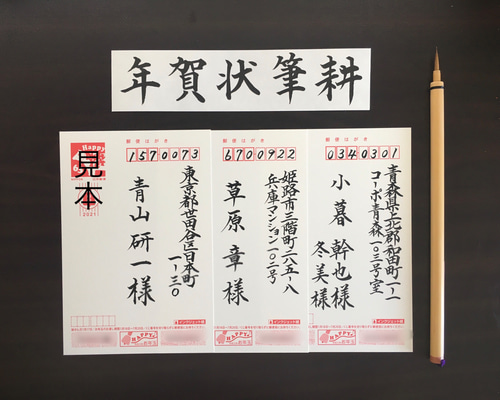 年賀状筆耕
郵便はがき
1570073
東京都世田谷区日本町
一ー三〇
青山研一様
見本
Happy
2021
郵便はがき
6700922
姫路市三階町二六五ー八
兵庫マンション一〇二号
草原章様
郵便はがき
0340301
青森県上北郡和田町一ー一
コーポ青森一〇三号室
小暮幹也様
冬美様
HAPPY